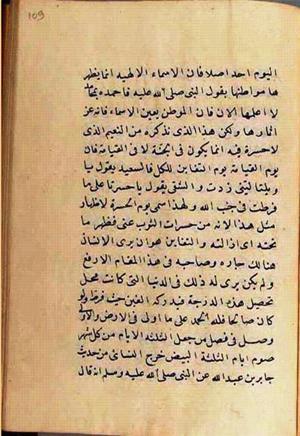 109
اليوم احد اصلا فان الاسماء الالهية انما يظهرها
مواطنها يقول النبى صلى الله عليه فاحمده بمحامد
لا اعلمها الان فان الموطن يعين الاسماء فانه عن
اثارها ولكن هذا الذى نذكره من النعيم الذى
لا حسرة فيه انما يكون فى الجنة لا فى القيامة فان
يوم القيامة يوم التغابن للكل فالسعيد يقول يا
ويلتا ليتنى زدت و الشقى يقول يا حسرتا على ما
فرطت فى جنب الله و لهذا سمى يوم الحسرة لاظهار
مثل هذا لانه من حسرات الثوب عنى فظهر ما
تحته اى ازالته و التغابن هو ان يرى الانسان
هنالك جاره وصاحبه فى هذا المقام الارفع
و لم يكن يرى له ذلك فى الدنيا التى كانت محل
تحصيل هذه الدرجة فيدركه الغبن حيث فرط و لو
كان صالحا فلله الحمد على ما اولى فى الاخرة والاولى
وصل فى فصل من جعل الثلثة الايام من كل شهر
صوم ايام الثلثة البيض خرج النسائى من حديث
جابر بن عبد الله عن النبى صلى الله عليه وسلم انه قال